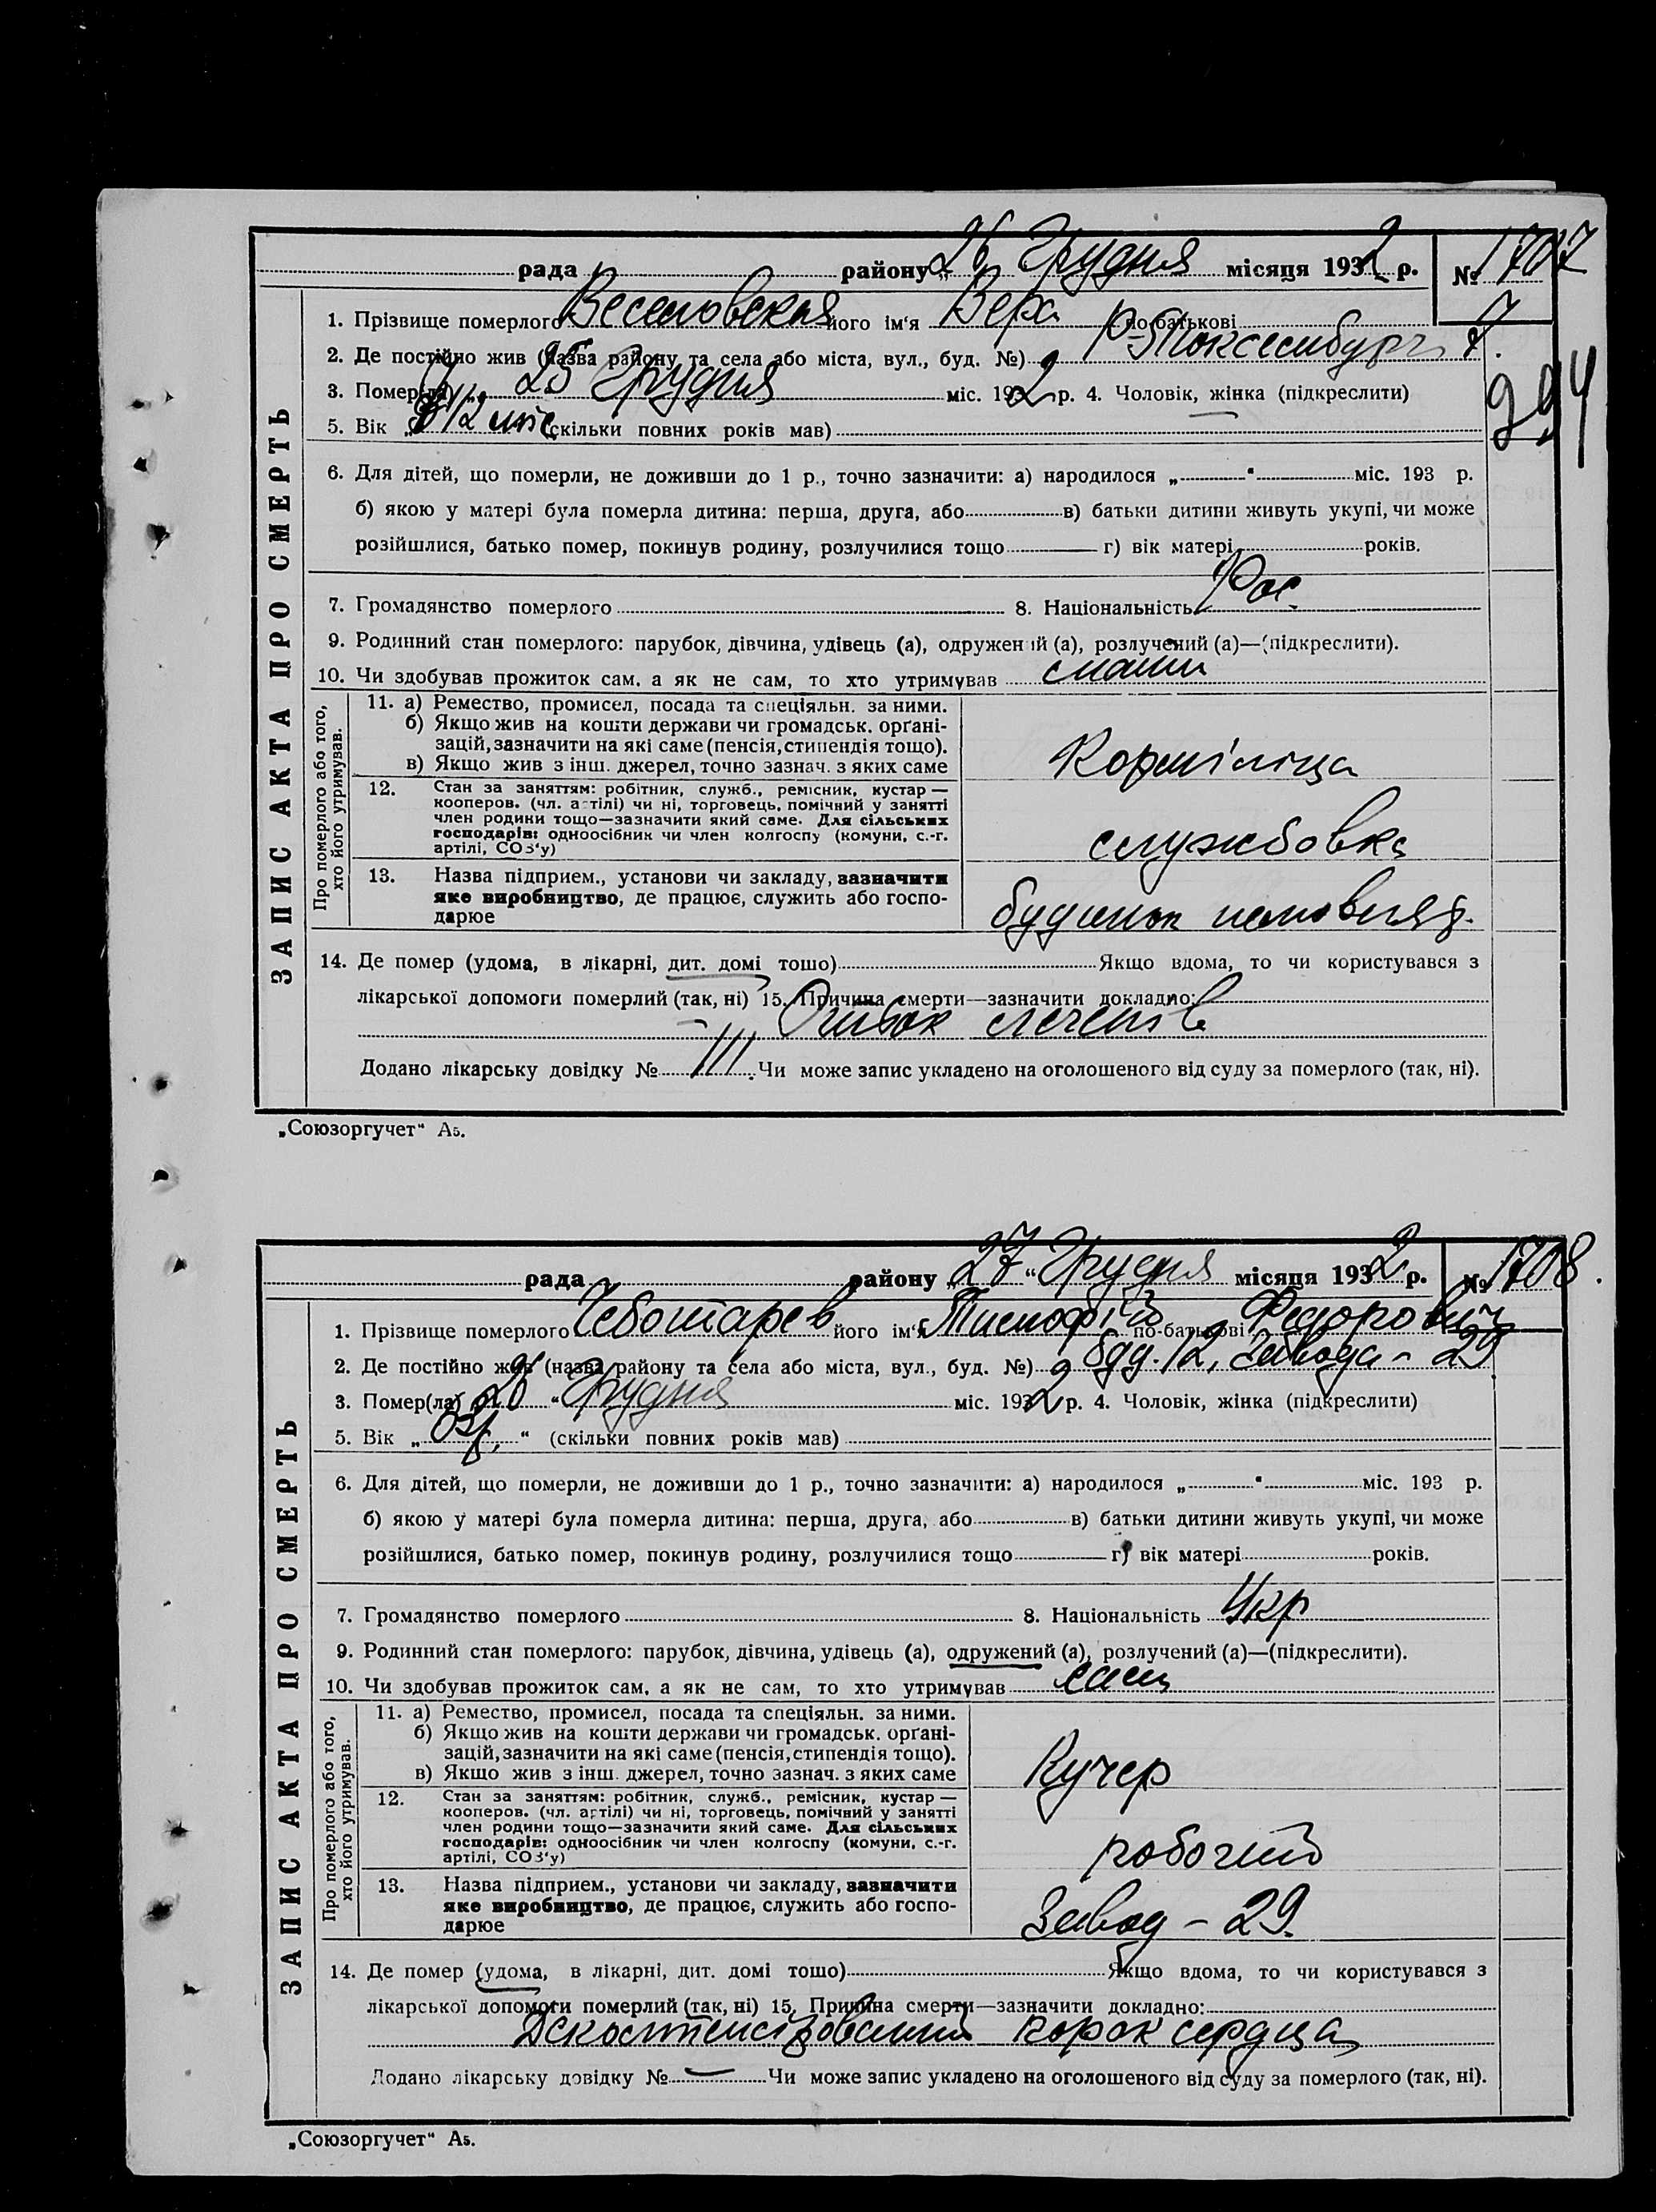 рада района „26 Грудня місяця 1932 р. № 1707
1. Прізвище померлого Веселовская його ім'я Вера по-батькові
2. Де постійно жив (назва району та села або міста, вул., буд. №) Р-Люксембург 7.
3. Помер(ла) „ 25 Грудня міс. 1932 р. 4. Чоловік, жінка (підкреслити)
994
5. Вік „ міс (скільки повних років мав)
6. Для дітей, що померли, не доживши до 1 р., точно зазначити: а) народилося „ “ міс. 193 р.
б) якою у матері була померла дитина: перша, друга, або в) батьки дитини живуть укупі, чи може
розійшлися, батько помер, покинув родину, розлучилися тощо г) вік матері років.
7. Громадянство померлого 8. Національність Рос.
9. Родинний стан померлого: парубок, дівчина, удівець (а), одружений (а), розлучений (а)—(підкреслити).
10. Чи здобував прожиток сам, а як не сам, то хто утримував мати
ЗАПИС АКТА ПРО СМЕРТЬ
Про померлого або того,
хто його утримував.
11. а) Ремество, промисел, посада та спеціяльн. за ними.
б) Якщо жив на кошти держави чи громадськ. орґані-
зацій, зазначити на які саме (пенсія, стипендія тощо).
в) Якщо жив з інш. джерел, точно зазнач. з яких саме
Корміліца
12. Стан за заняттям: робітник, служб., ремісник, кустар —
кооперов. (чл. артілі) чи ні, торговець, помічний у занятті
член родини тощо—зазначити який саме. Для сільських
господарів: одноосібник чи член колгоспу (комуни, с.-г.
артілі, СОЗ'у)
службовка
13. Назва підприєм., установи чи закладу, зазначити
яке виробництво, де працює, служить або госпо-
дарює
будинок немовляд.
14. Де помер (удома, в лікарні, дит. домі тошо) Якщо вдома, то чи користувався з
лікарської допомоги померлий (так, ні) 15. Причина смерти—зазначити докладно:
легенів
Додано лікарську довідку № 111 Чи може запис укладено на оголошеного від суду за померлого (так, ні).
„Союзоргучет“ А5.
рада району „ 27 “ Грудня місяця 1932 р. № 1708.
1. Прізвище померлого Чеботарев його ім'я Тимофій по-батькові Федорович
2. Де постійно жив (назва району та села або міста, вул., буд. №) буд. 12, завода - 29
3. Помер(ла) „ 26 “ Грудня міс. 1932 р. 4. Чоловік, жінка (підкреслити)
5. Вік „ “ (скільки повних років мав)
6. Для дітей, що померли, не доживши до 1 р., точно зазначити: а) народилося „ “ міс. 193 р.
б) якою у матері була померла дитина: перша, друга, або в) батьки дитини живуть укупі, чи може
розійшлися, батько помер, покинув родину, розлучилися тощо г) вік матері років.
7. Громадянство померлого 8. Національність Укр
9. Родинний стан померлого: парубок, дівчина, удівець (а), одружений (а), розлучений (а)—(підкреслити).
10. Чи здобував прожиток сам, а як не сам, то хто утримував сам
ЗАПИС АКТА ПРО СМЕРТЬ
Про померлого або того,
хто його утримував.
11. а) Ремество, промисел, посада та спеціяльн. за ними.
б) Якщо жив на кошти держави чи громадськ. орґані-
зацій, зазначити на які саме (пенсія, стипендія тощо).
в) Якщо жив з інш. джерел, точно зазнач. з яких саме
Кучер
12. Стан за заняттям: робітник, служб., ремісник, кустар —
кооперов. (чл. артілі) чи ні, торговець, помічний у занятті
член родини тощо—зазначити який саме. Для сільських
господарів: одноосібник чи член колгоспу (комуни, с.-г.
артілі, СОЗ'у)
робочий
13. Назва підприєм., установи чи закладу, зазначити
яке виробництво, де працює, служить або госпо-
дарюе
Завод - 29.
14. Де помер (удома, в лікарні, дит. домі тошо) Якщо вдома, то чи користувався з
лікарської допомоги померлий (так, ні) 15. Причина смерти—зазначити докладно:
порок сердца
Додано лікарську довідку № — Чи може запис укладено на оголошеного від суду за померлого (так, ні).
„Союзоргучет“ А5.